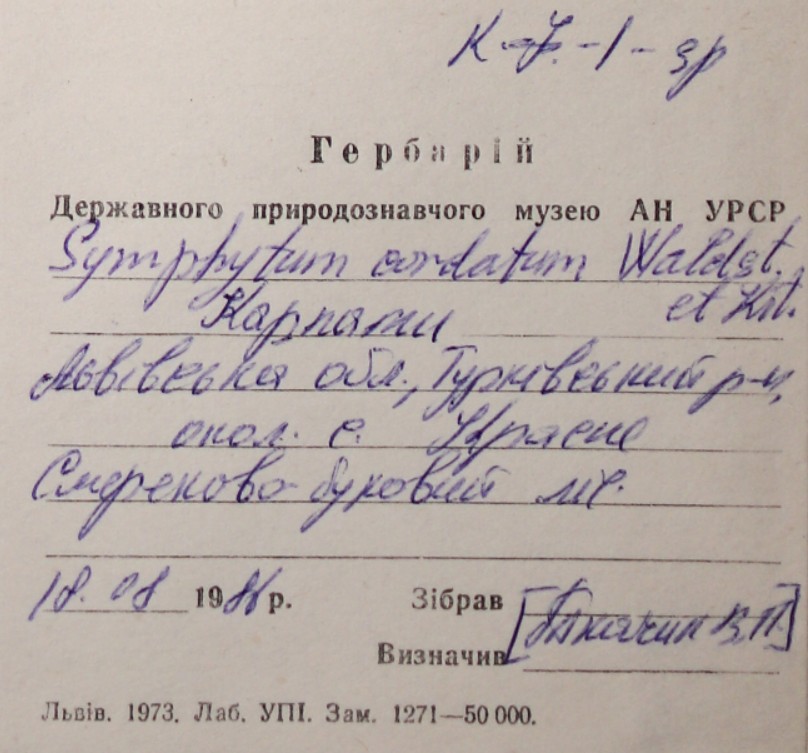 Гербарій
Державного природознавчого музею АН УРСР
Symphytum cordatum Waldst.
et Kit.
Карпати
Львівська обл., Турківський р-н,
окол. с. Красне
Смереково-буковий ліс.
18. 08 1986 р.
Зібрав
В.П.]
Визначив
Львів. 1973. Лаб. УПІ. Зам. 1271—50 000.